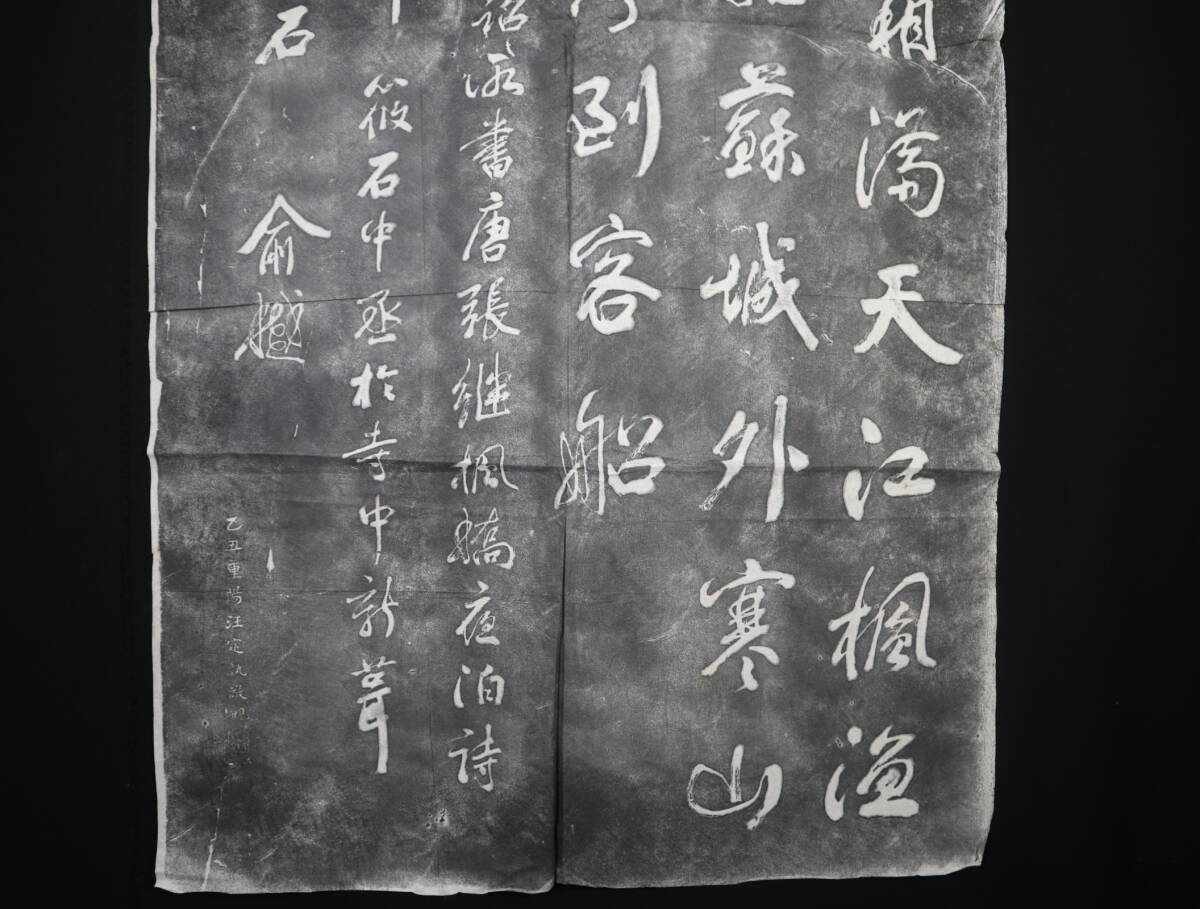 霜滿天江楓漁
蘇城外寒山
到客船
詔詠書唐張繼楓橋夜泊詩
筱石中丞於寺中新葺
石 俞樾
乙丑重陽汪定